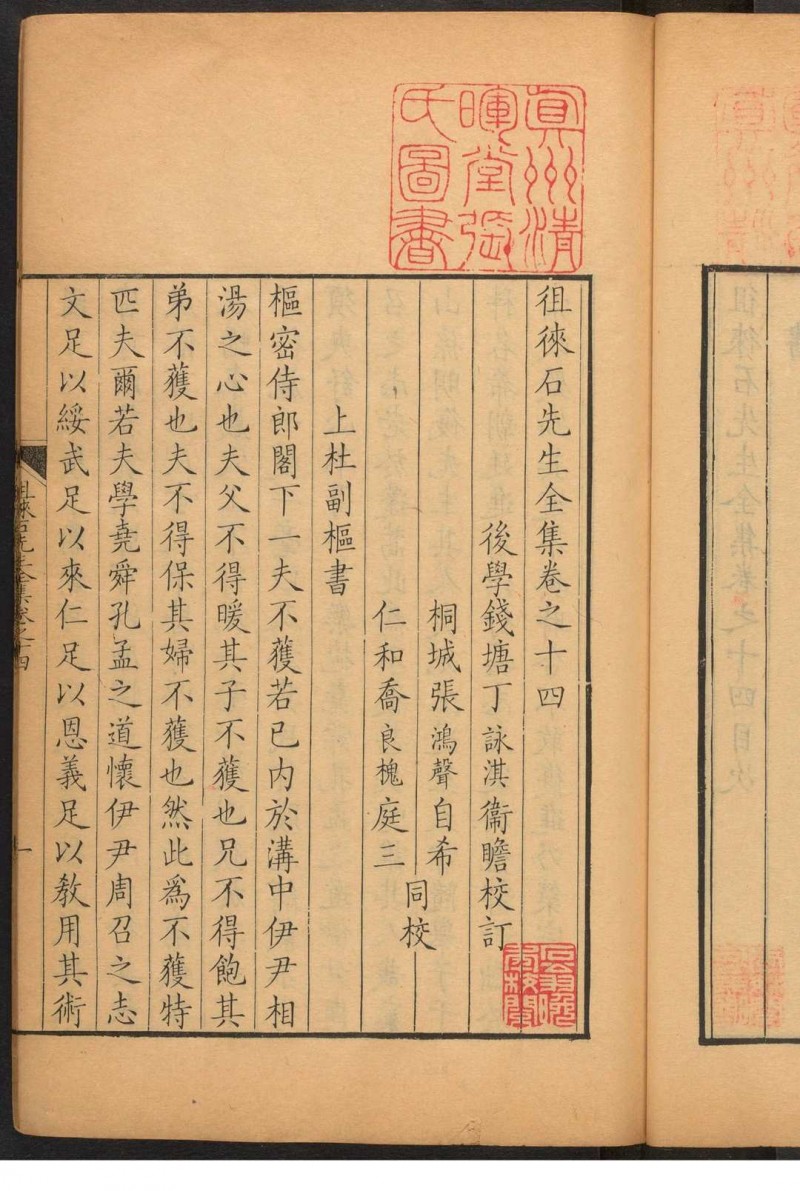 真州清
暉堂張
氏圖書
徂徠石先生全集卷之十四
後學錢塘丁詠淇菊瞻校訂
桐城張鴻聲自希
仁和喬良槐庭三
同校
上杜副樞書
樞密侍郎閣下一夫不獲若已内於溝中伊尹相
湯之心也夫父不得暖其子不獲也兄不得飽其
弟不獲也夫不得保其婦不獲也然此為不獲特
匹夫爾若夫學堯舜孔孟之道懷伊尹周召之志
文足以綏武足以來仁足以恩義足以教用其術
徂徠石先生全集卷之十四
一
徂徠石先生全集卷之十四目次